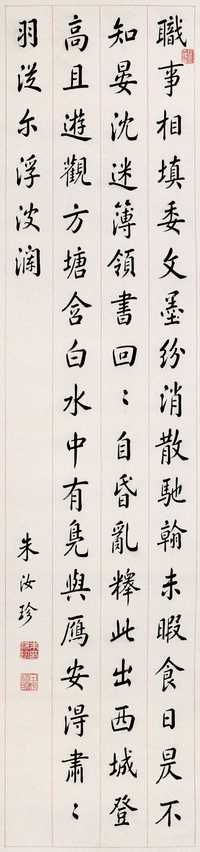 職事相填委文墨紛消散馳翰未暇食日昃不
知晏沈迷簿領書回〻自昏亂釋此出西城登
高且遊觀方塘含白水中有鳧與雁安得肅〻
羽從尔浮波瀾
朱汝珍